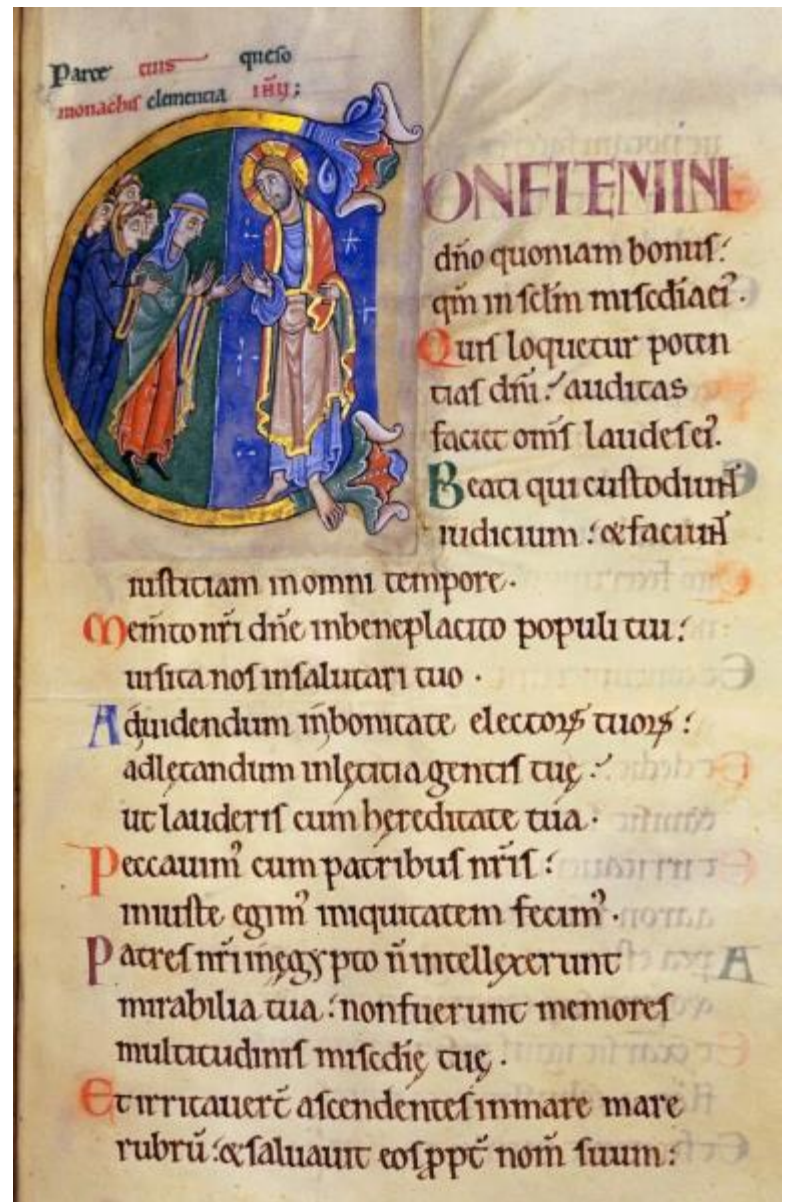 Parce tuis queso
monachis clementia IHU;
CONFITEMINI
dño quoniam bonus:
qm̄ in sclm̄ misc̄dia ei᾽.
Quis loquetur poten
tias dñi: auditas
faciet om̄s laudes ei᾽.
Beati qui custodiunt
iudicium: & faciunt
iusticiam in omni tempore.
Mem̄to nr̄i dñe in beneplacito populi tui:
uisita nos in salutari tuo.
Ad uidendum in bonitate electoꝝ tuoꝝ:
ad lętandum in lęticia gentis tuę:
ut lauderis cum hęreditate tua.
Peccauim᾽ cum patribus nr̄is:
iniuste egim᾽ iniquitatem fecim᾽.
Patres nr̄i in ęgypto ñ intellexerunt
mirabilia tua: non fuerunt memores
multitudinis misc̄dię tuę.
Et irritauer̄t ascendentes in mare mare
rubrū: & saluauit eos ꝓpt̄ nom̄ suum: